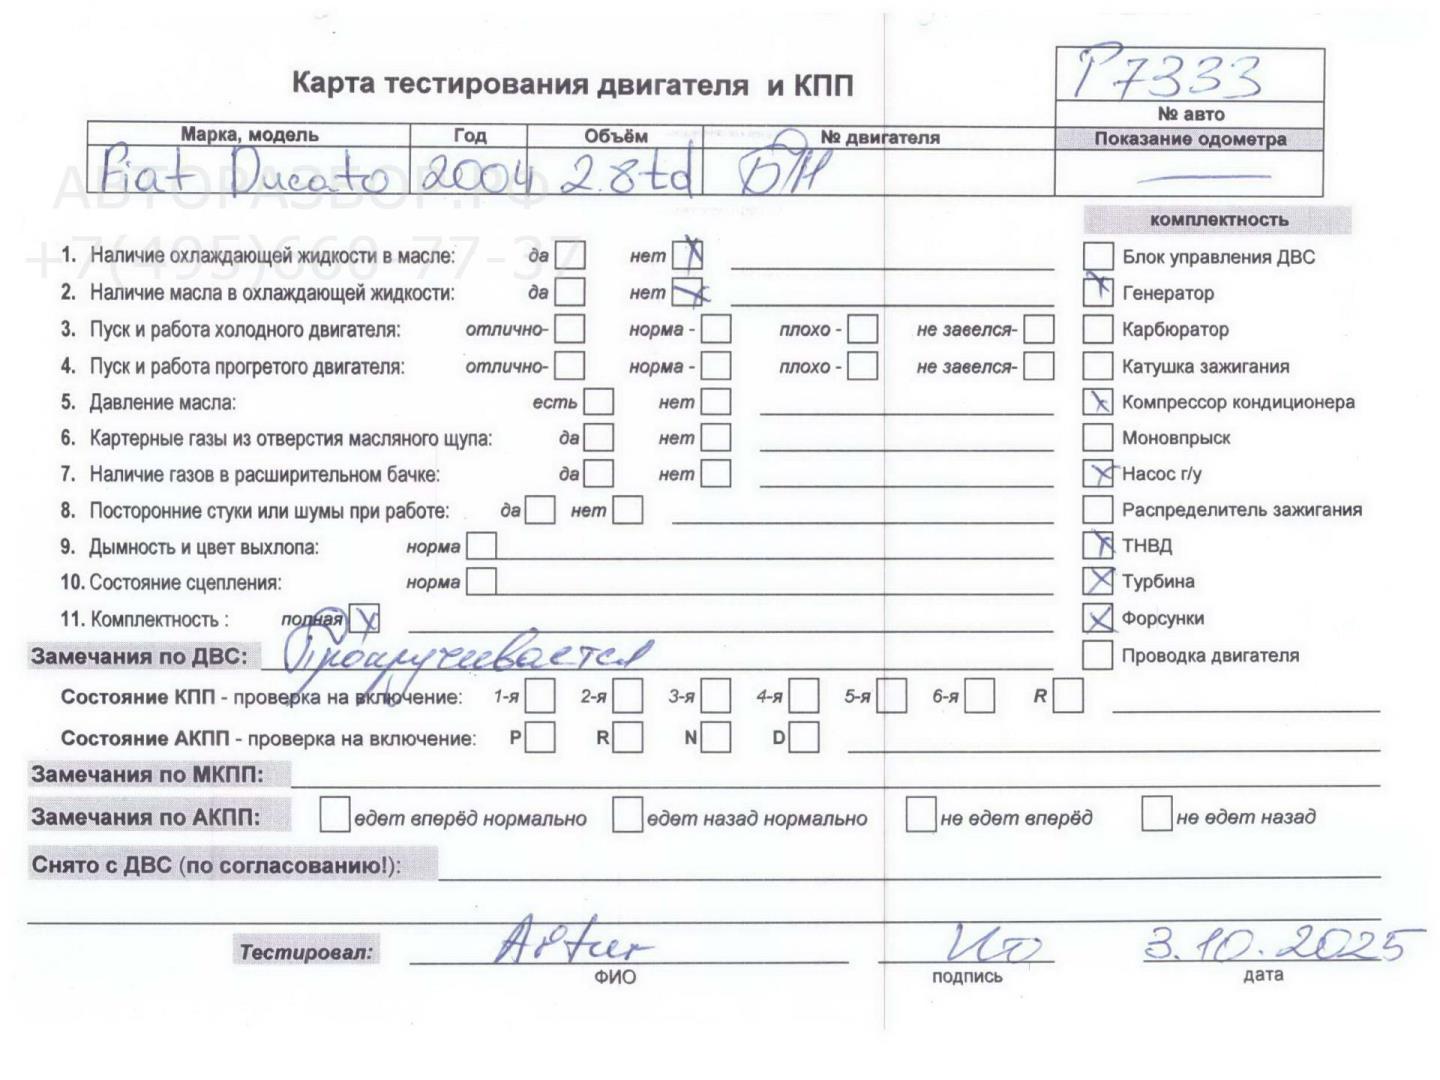 Р7333
Карта тестирования двигателя и КПП
№ авто
Марка, модель Год Объём № двигателя Показание одометра
Fiat Ducato 2004 2.8td Б/Н
АВТОРАЗБОР.РФ
комплектность
+7(495)660-77-37
1. Наличие охлаждающей жидкости в масле: да нет Блок управления ДВС
2. Наличие масла в охлаждающей жидкости: да нет Генератор
3. Пуск и работа холодного двигателя: отлично- норма - плохо - не завелся- Карбюратор
4. Пуск и работа прогретого двигателя: отлично- норма - плохо - не завелся- Катушка зажигания
5. Давление масла: есть нет Компрессор кондиционера
6. Картерные газы из отверстия масляного щупа: да нет Моновпрыск
7. Наличие газов в расширительном бачке: да нет Насос г/у
8. Посторонние стуки или шумы при работе: да нет Распределитель зажигания
9. Дымность и цвет выхлопа: норма ТНВД
10. Состояние сцепления: норма Турбина
11. Комплектность : полная Форсунки
Замечания по ДВС: Прокручивается Проводка двигателя
Состояние КПП - проверка на включение: 1-я 2-я 3-я 4-я 5-я 6-я R
Состояние АКПП - проверка на включение: P R N D
Замечания по МКПП:
Замечания по АКПП: едет вперёд нормально едет назад нормально не едет вперёд не едет назад
Снято с ДВС (по согласованию!):
Тестировал: Artur 3.10.2025
ФИО подпись дата